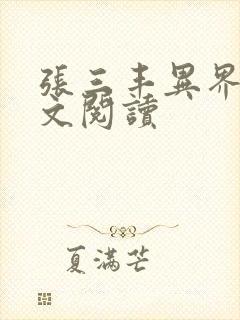 張三丰異界
文閱讀
夏滿芒